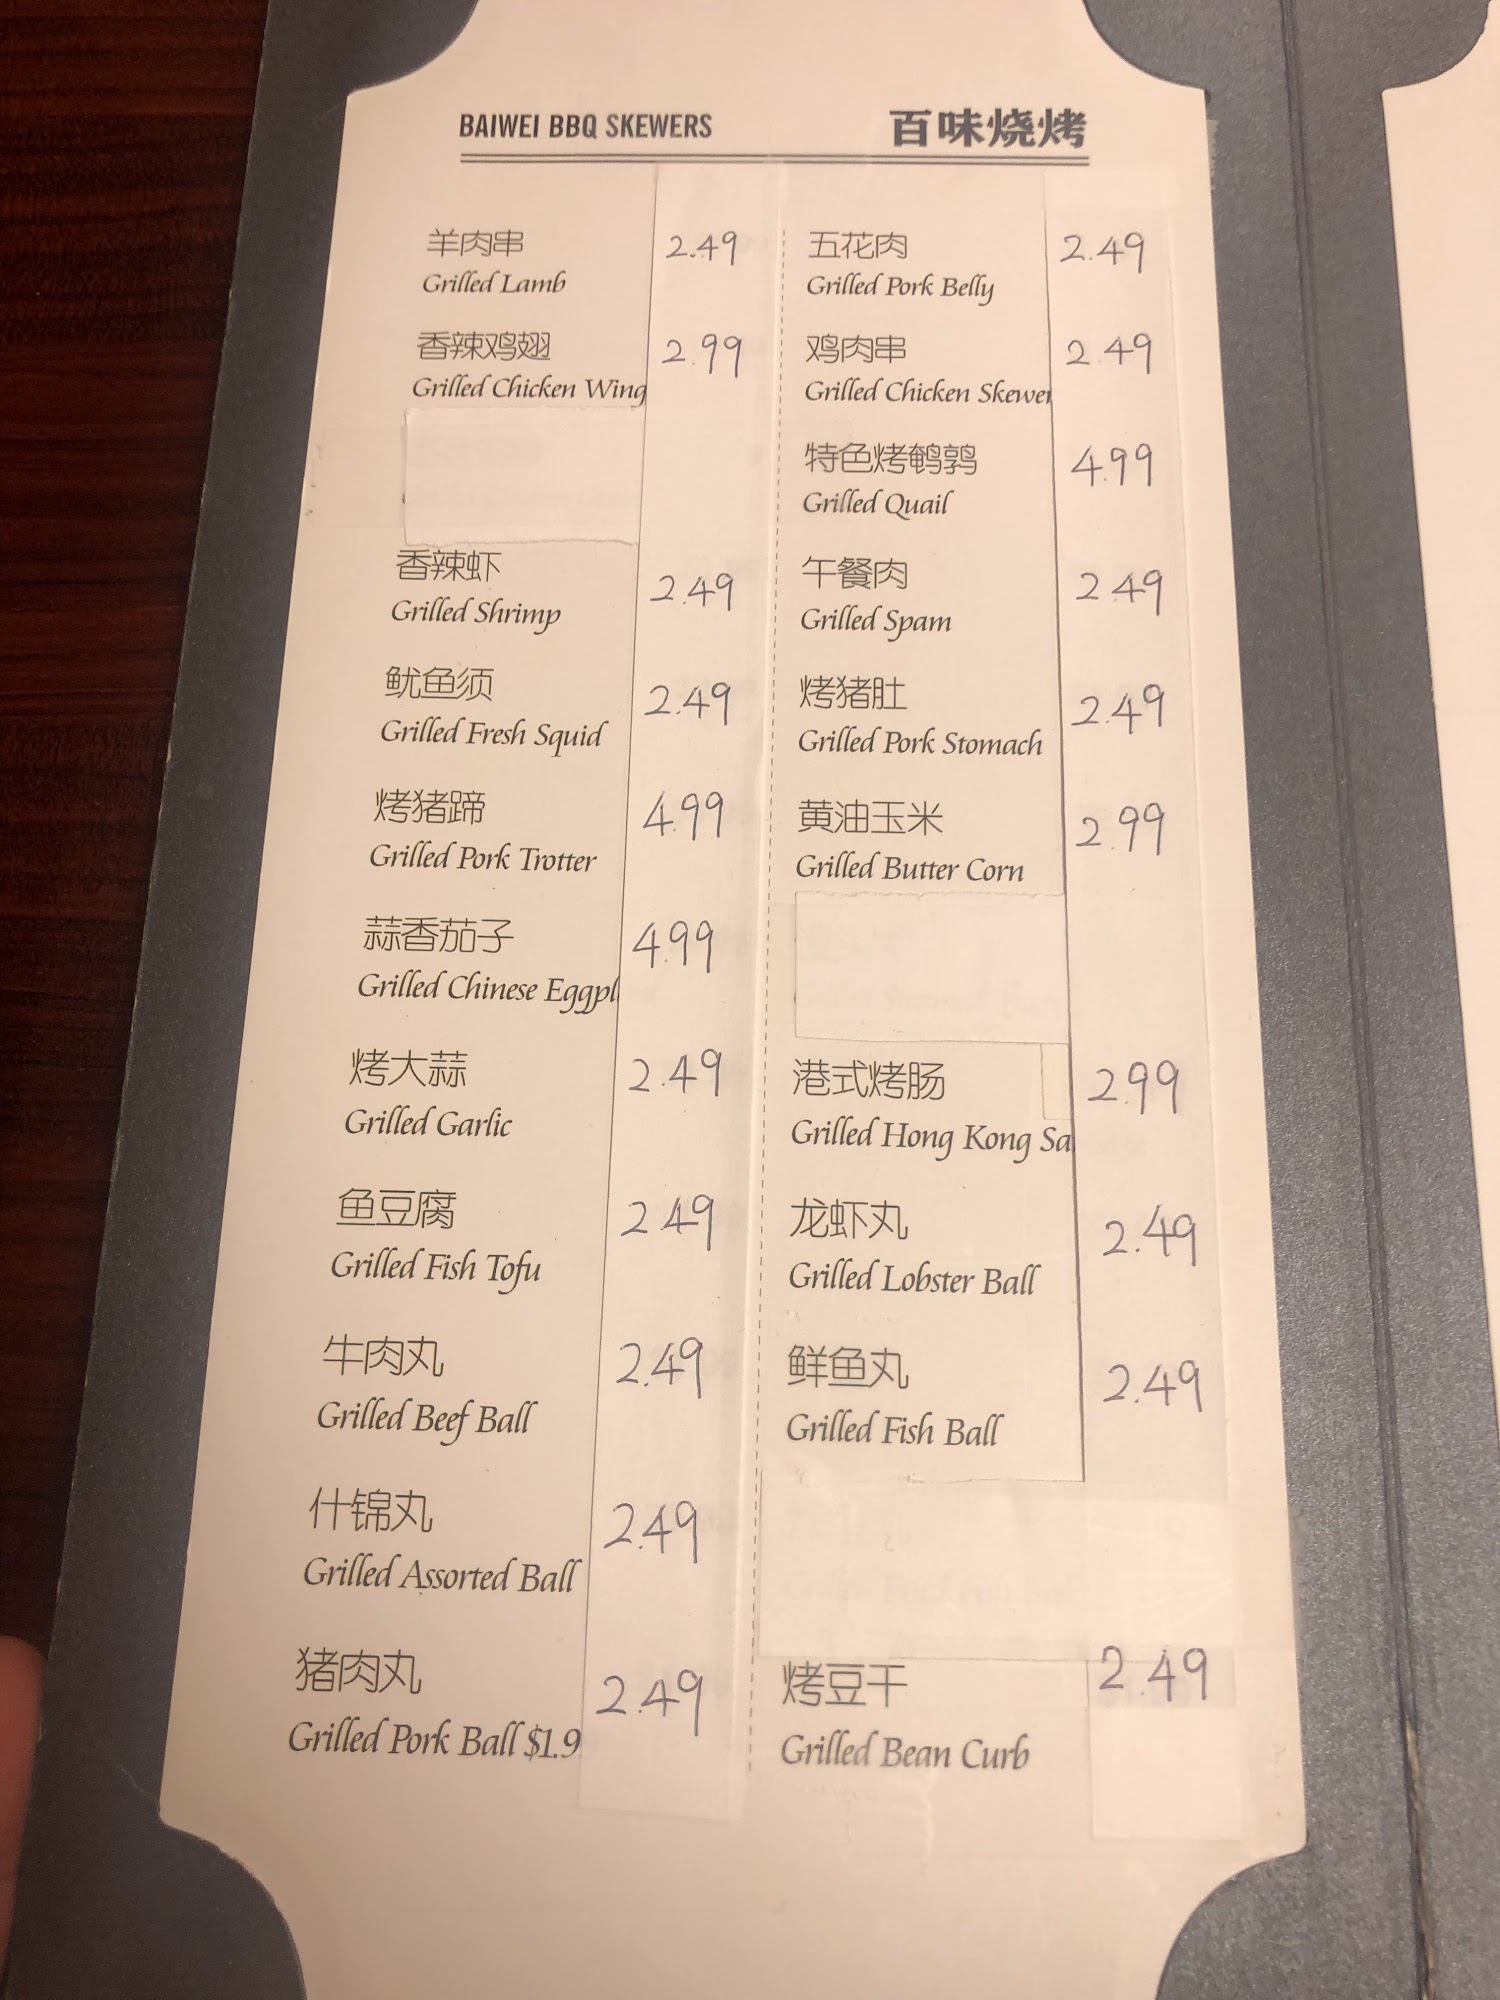 BAIWEI BBQ SKEWERS 百味烧烤
羊肉串 2.49
Grilled Lamb
香辣鸡翅 2.99
Grilled Chicken Wing
香辣虾 2.49
Grilled Shrimp
鱿鱼须 2.49
Grilled Fresh Squid
烤猪蹄 4.99
Grilled Pork Trotter
蒜香茄子 4.99
Grilled Chinese Eggpl
烤大蒜 2.49
Grilled Garlic
鱼豆腐 2.49
Grilled Fish Tofu
牛肉丸 2.49
Grilled Beef Ball
什锦丸 2.49
Grilled Assorted Ball
猪肉丸 2.49
Grilled Pork Ball $1.9
五花肉 2.49
Grilled Pork Belly
鸡肉串 2.49
Grilled Chicken Skewer
特色烤鹌鹑 4.99
Grilled Quail
午餐肉 2.49
Grilled Spam
烤猪肚 2.49
Grilled Pork Stomach
黄油玉米 2.99
Grilled Butter Corn
港式烤肠 2.99
Grilled Hong Kong Sa
龙虾丸 2.49
Grilled Lobster Ball
鲜鱼丸 2.49
Grilled Fish Ball
烤豆干 2.49
Grilled Bean Curb